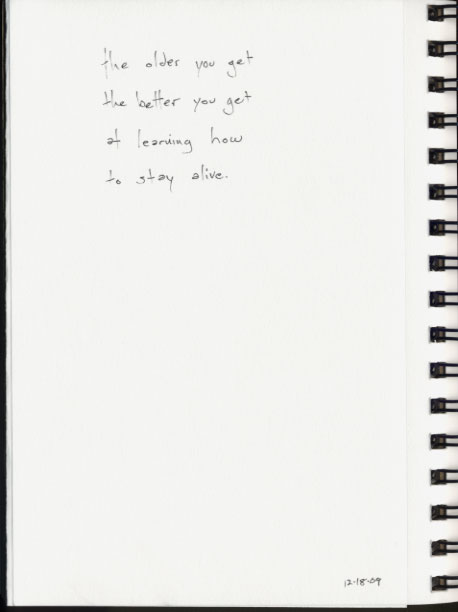 the older you get
the better you get
at learning how
to stay alive.
12-18-09